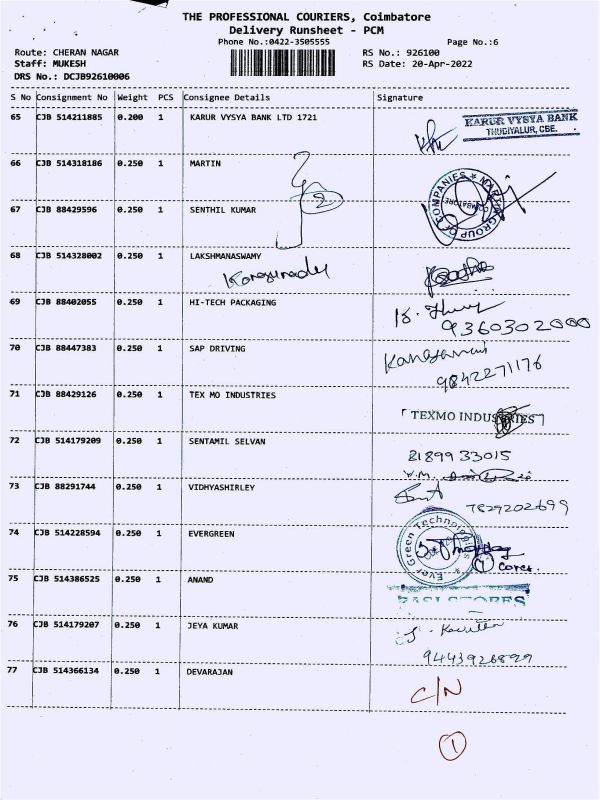 THE PROFESSIONAL COURIERS, Coimbatore
Delivery Runsheet - PCM
Phone No.:0422-3505555 Page No.:6
Route: CHERAN NAGAR RS No.: 926100
Staff: MUKESH RS Date: 20-Apr-2022
DRS No.: DCJB92610006
S No Consignment No Weight PCS Consignee Details Signature
65 CJB 514211885 0.200 1 KARUR VYSYA BANK LTD 1721
KARUR VYSYA BANK
THUDIYALUR, CBE.
66 CJB 514318186 0.250 1 MARTIN
MARTIN GROUP OF COMPANIES
COIMBATORE
2
67 CJB 88429596 0.250 1 SENTHIL KUMAR
68 CJB 514328002 0.250 1 LAKSHMANASWAMY
69 CJB 88402055 0.250 1 HI-TECH PACKAGING
9360302000
70 CJB 88447383 0.250 1 SAP DRIVING
9842271176
71 CJB 88429126 0.250 1 TEX MO INDUSTRIES
TEXMO INDUSTRIES
72 CJB 514179209 0.250 1 SENTAMIL SELVAN
81899 33015
73 CJB 88291744 0.250 1 VIDHYASHIRLEY
7829202699
74 CJB 514228594 0.250 1 EVERGREEN
Ever Green Technologies
1
75 CJB 514386525 0.250 1 ANAND
76 CJB 514179207 0.250 1 JEYA KUMAR
9443926899
77 CJB 514366134 0.250 1 DEVARAJAN
C/N
1